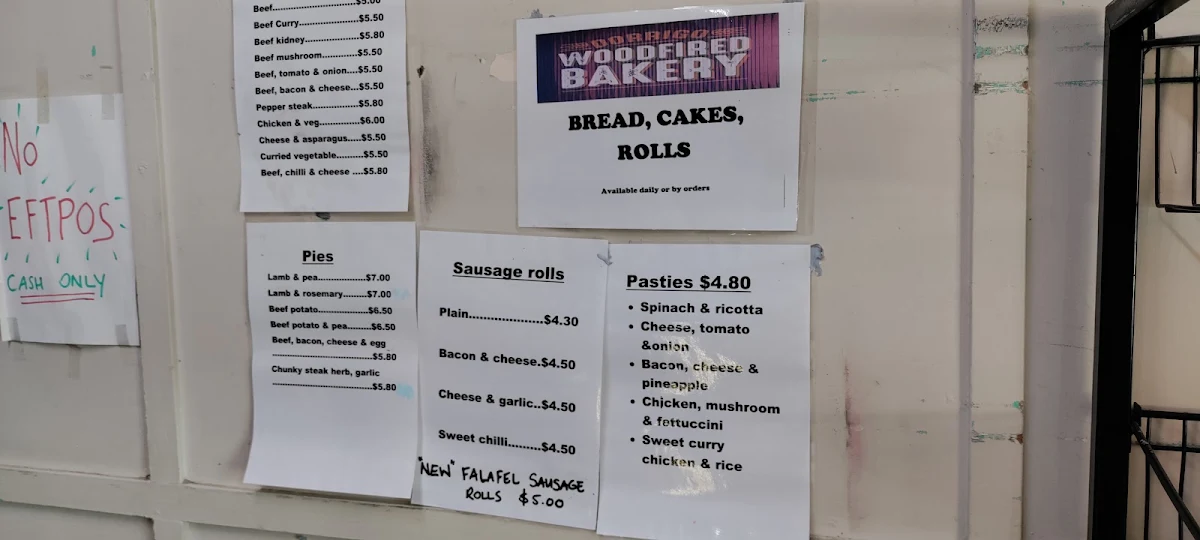 No
EFTPOS
CASH ONLY
Beef..................$5.00
Beef Curry...............$5.50
Beef kidney...............$5.80
Beef mushroom............$5.50
Beef, tomato & onion....$5.50
Beef, bacon & cheese...$5.50
Pepper steak...............$5.80
Chicken & veg..............$6.00
Cheese & asparagus.....$5.50
Curried vegetable..........$5.50
Beef, chilli & cheese ....$5.80
DORRIGO
WOODFIRED
BAKERY
BREAD, CAKES,
ROLLS
Available daily or by orders
Pies
Lamb & pea................$7.00
Lamb & rosemary.........$7.00
Beef potato..................$6.50
Beef potato & pea.........$6.50
Beef, bacon, cheese & egg
..............................$5.80
Chunky steak herb, garlic
..............................$5.80
Sausage rolls
Plain....................$4.30
Bacon & cheese.$4.50
Cheese & garlic..$4.50
Sweet chilli.........$4.50
"NEW" FALAFEL SAUSAGE
ROLLS $5.00
Pasties $4.80
• Spinach & ricotta
• Cheese, tomato
&onion
• Bacon, cheese &
pineapple
• Chicken, mushroom
& fettuccini
• Sweet curry
chicken & rice